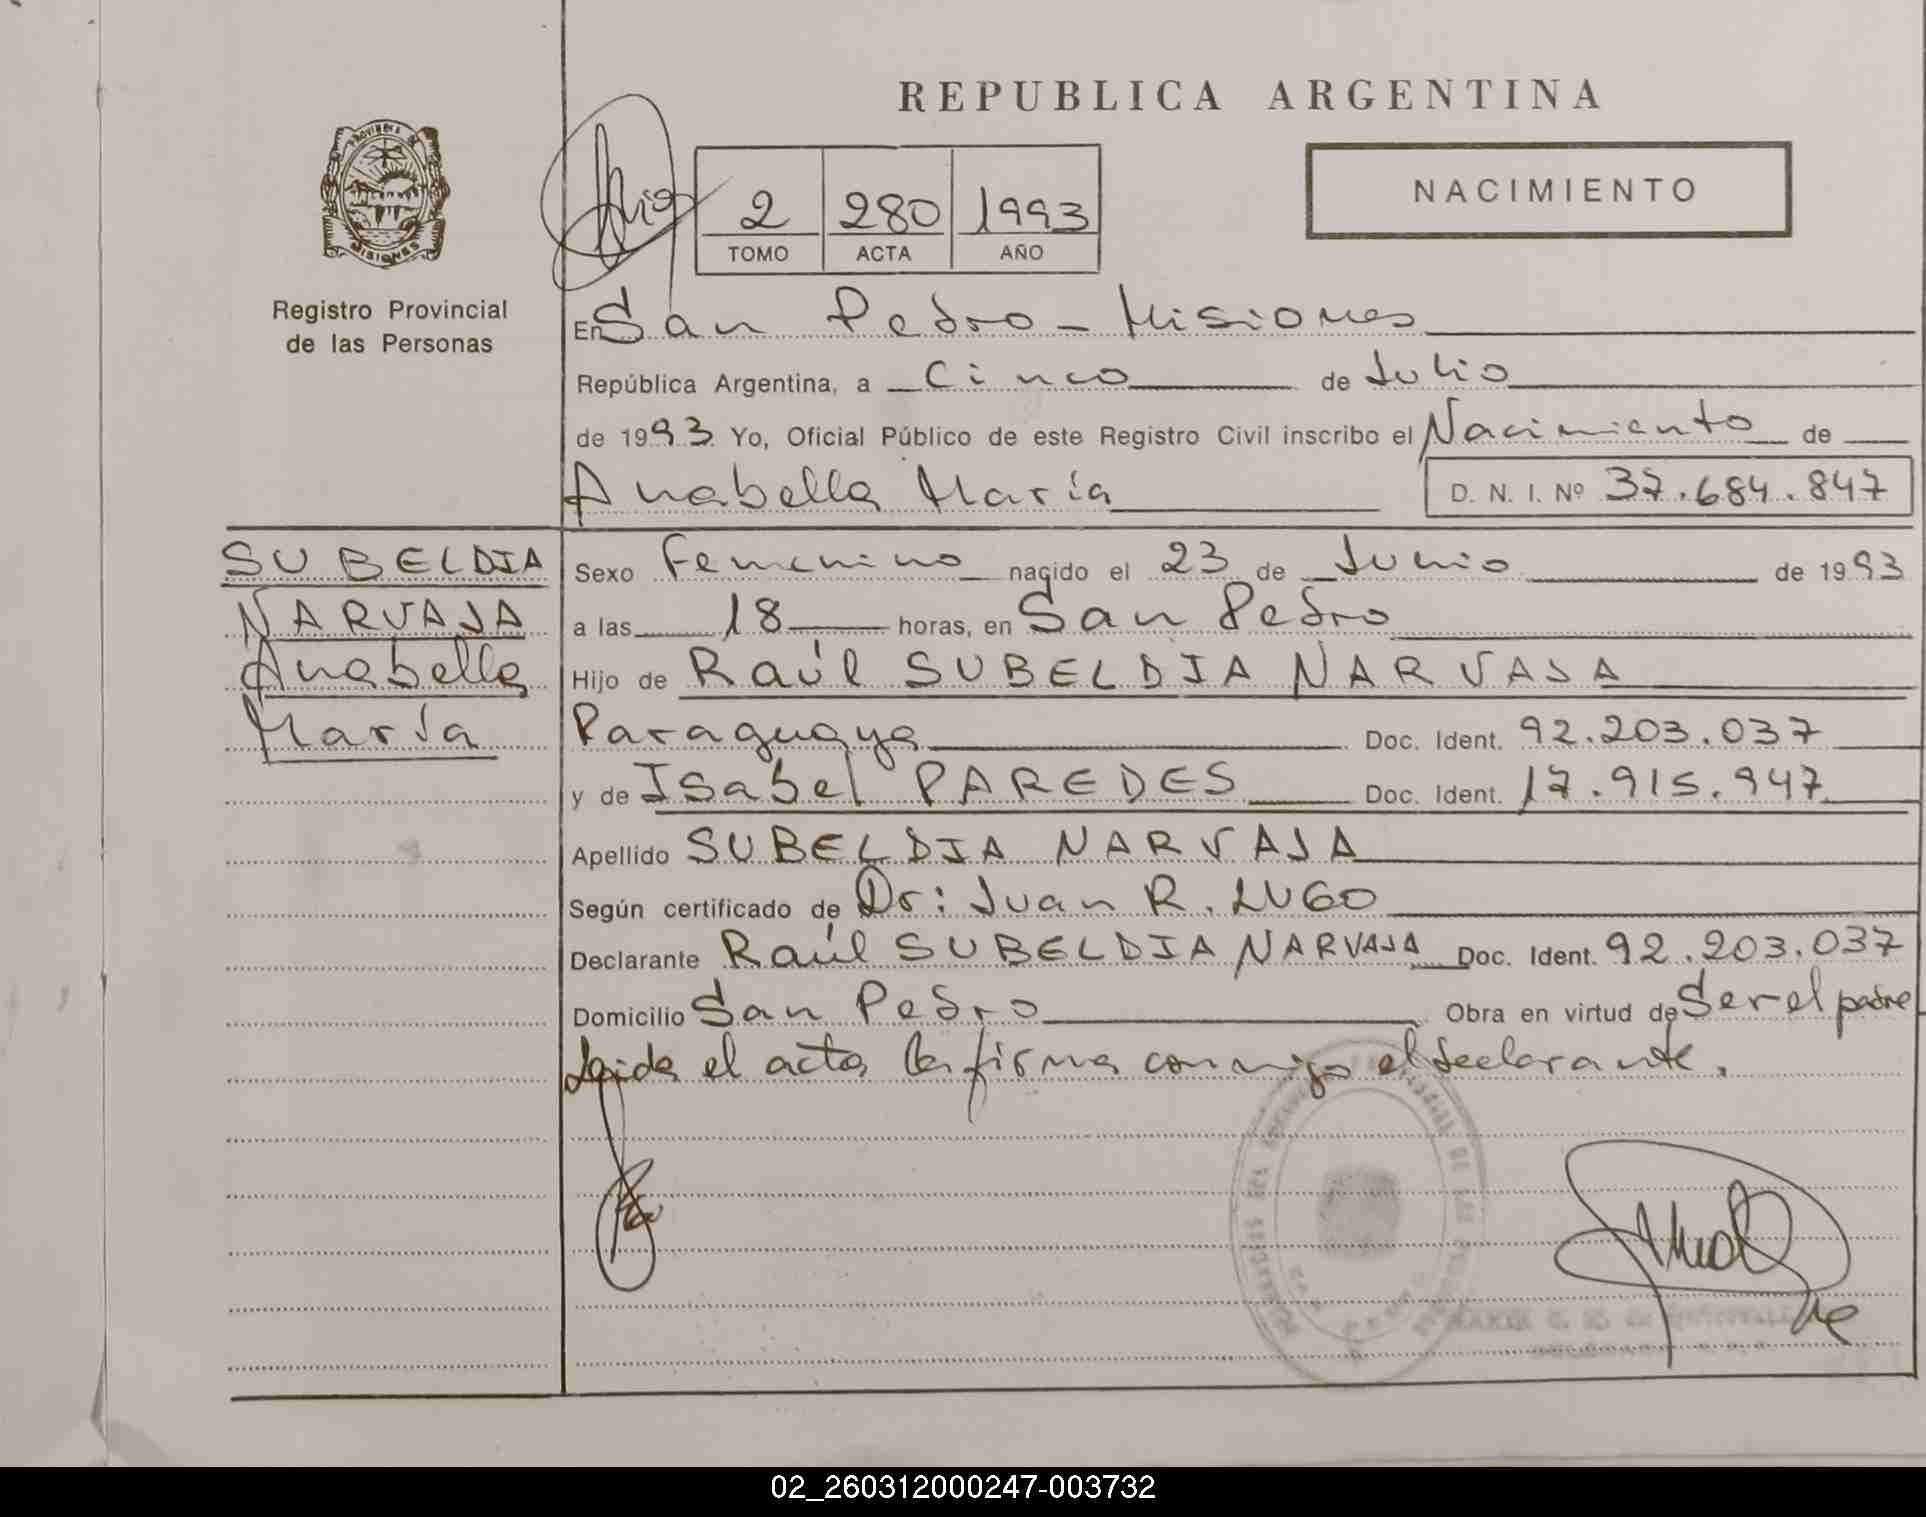 REPUBLICA ARGENTINA
PROVINCIA DE
MISIONES
Registro Provincial
de las Personas
2 280 1993
TOMO ACTA AÑO
NACIMIENTO
En San Pedro - Misiones
República Argentina, a Cinco de Julio
de 1993 Yo, Oficial Público de este Registro Civil inscribo el Nacimiento de
Anabella María D. N. I. Nº 37.684.847
SUBELDIA
NARVAJA
Anabella
María
Sexo Femenino nacido el 23 de Junio de 1993
a las 18 horas, en San Pedro
Hijo de Raúl SUBELDIA NARVAJA
Paraguaya Doc. Ident. 92.203.037
y de Isabel PAREDES Doc. Ident. 17.915.947
Apellido SUBELDIA NARVAJA
Según certificado de Dr: Juan R. LUGO
Declarante Raúl SUBELDIA NARVAJA Doc. Ident. 92.203.037
Domicilio San Pedro Obra en virtud de Ser el padre
Leida el acta la firma conmigo el declarante.
02_260312000247-003732